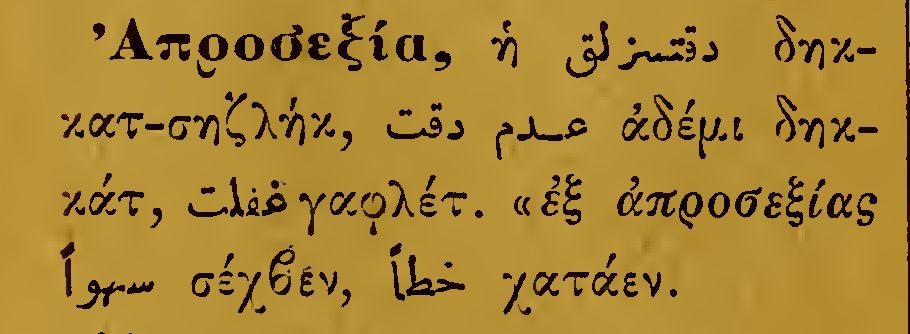 Ἀπροσεξία, ἡ دقتسزلق δηκ-
κατ-σηζλήκ, عدم دقت ἀδέμι δηκ-
κάτ, غفلت γαφλέτ. «ἐξ ἀπροσεξίας
سهواً σέχβεν, خطأً χατάεν.